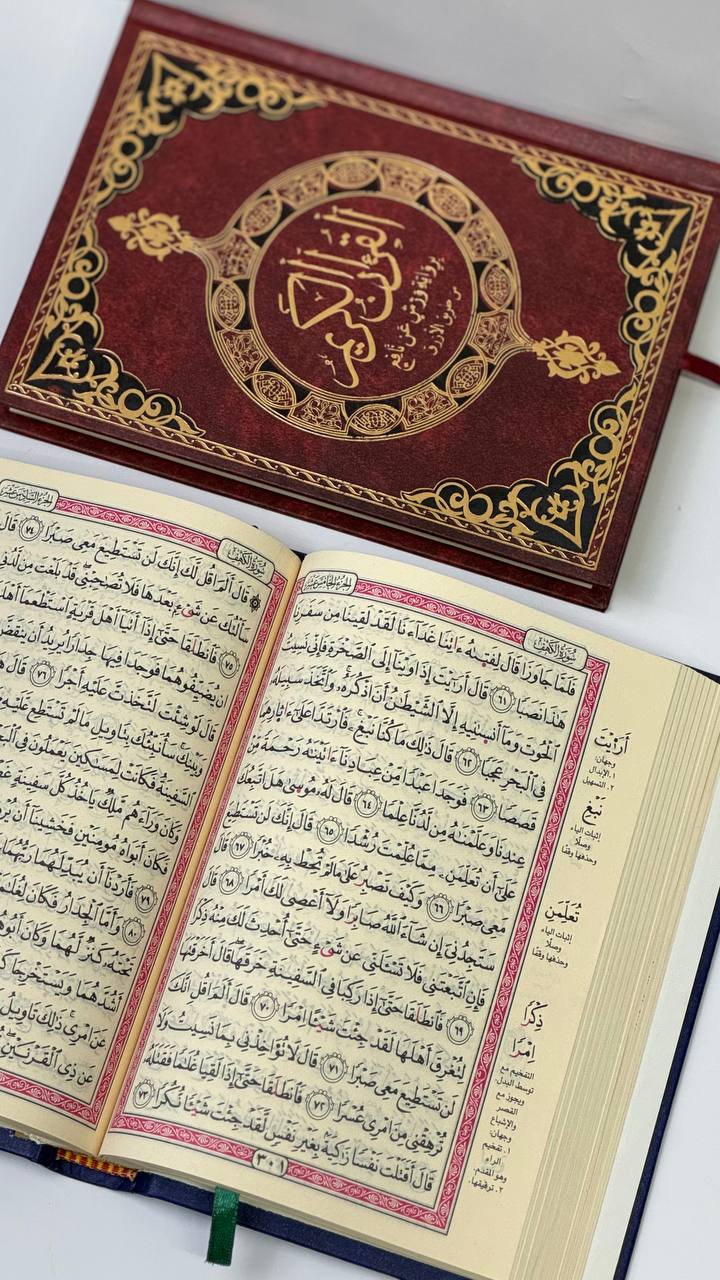 القرءان الكريم
برواية ورش عن نافع
من طريق الأزرق
الجزء الخامس عشر
سورة الكهف
فَلَمَّا جَاوَزَا قَالَ لِفَتَيٰهُ ءَاتِنَا غَدَآءَنَا لَقَدْ لَقِينَا مِن سَفَرِنَا
هَٰذَا نَصَبًا ٦١ قَالَ أَرَٰيْتَ إِذَ اَوَيْنَآ إِلَى اَلصَّخْرَةِ فَإِنِّے نَسِيتُ
اُلْحُوتَ وَمَآ أَنسَيٰنِيهِ إِلَّا اَلشَّيْطَٰنُ أَنَ اَذْكُرَهُۥ وَاتَّخَذَ سَبِيلَهُۥ
فِے اِلْبَحْرِ عَجَبًا ٦٢ قَالَ ذَٰلِكَ مَا كُنَّا نَبْغِۦ فَارْتَدَّا عَلَىٰٓ ءَاثَارِهِمَا
قَصَصًا ٦٣ فَوَجَدَا عَبْدًا مِّنْ عِبَادِنَآ ءَاتَيْنَٰهُ رَحْمَةً مِّنْ
عِندِنَا وَعَلَّمْنَٰهُ مِن لَّدُنَّا عِلْمًا ٦٤ قَالَ لَهُۥ مُوسَىٰ هَلَ اَتَّبِعُكَ
عَلَىٰٓ أَن تُعَلِّمَنِۦ مِمَّا عُلِّمْتَ رُشْدًا ٦٥ قَالَ إِنَّكَ لَن تَسْتَطِيعَ
مَعِے صَبْرًا ٦٦ وَكَيْفَ تَصْبِرُ عَلَىٰ مَا لَمْ تُحِطْ بِهِۦ خُبْرًا ٦٧ قَالَ
سَتَجِدُنِيَ إِن شَآءَ اَللَّهُ صَابِرًا وَلَآ أَعْصِے لَكَ أَمْرًا ٦٨ قَالَ
فَإِنِ اِتَّبَعْتَنِے فَلَا تَسْـَٔلَنِّے عَن شَےْءٍ حَتَّىٰٓ أُحْدِثَ لَكَ مِنْهُ ذِكْرًا
٦٩ فَانطَلَقَا حَتَّىٰٓ إِذَا رَكِبَا فِے اِلسَّفِينَةِ خَرَقَهَا قَالَ أَخَرَقْتَهَا
لِتُغْرِقَ أَهْلَهَا لَقَدْ جِئْتَ شَيْـًٔا اِمْرًا ٧٠ قَالَ أَلَمَ اَقُلِ اِنَّكَ
لَن تَسْتَطِيعَ مَعِے صَبْرًا ٧١ قَالَ لَا تُوَاخِذْنِے بِمَا نَسِيتُ وَلَا
تُرْهِقْنِے مِنَ اَمْرِے عُسْرًا ٧٢ فَانطَلَقَا حَتَّىٰٓ إِذَا لَقِيَا غُلَٰمًا فَقَتَلَهُۥ
قَالَ أَقَتَلْتَ نَفْسًا زَٰكِيَةَۢ بِغَيْرِ نَفْسٍ لَّقَدْ جِئْتَ شَيْـًٔا نُّكُرًا ٧٣
٣٠١
أَرَٰيْتَ
وجهان:
١. الإبدال
٢. التسهيل
نَبْغِۦ
إثبات الياء
وصلًا
وحذفها وقفًا
تُعَلِّمَنِۦ
إثبات الياء
وصلًا
وحذفها وقفًا
ذِكْرًا
إِمْرًا
التفخيم مع
توسط البدل
ويجوز مع
القصر
والإشباع
وجهان:
١. تفخيم
الراء
وهو المقدم.
٢. ترقيقها.
سورة الكهف
الجزء السادس عشر
قَالَ أَلَمَ اَقُل لَّكَ إِنَّكَ لَن تَسْتَطِيعَ مَعِے صَبْرًا ٧٤ قَالَ
سَأَلْتُكَ عَن شَےْءِۢ بَعْدَهَا فَلَا تُصَٰحِبْنِے قَدْ بَلَغْتَ مِن لَّدُنِے
٧٥ فَانطَلَقَا حَتَّىٰٓ إِذَآ أَتَيَآ أَهْلَ قَرْيَةٍ اِسْتَطْعَمَآ
أَن يُضَيِّفُوهُمَا فَوَجَدَا فِيهَا جِدَارًا يُرِيدُ أَن يَنقَضَّ
قَالَ لَوْ شِئْتَ لَتَّخَذتَّ عَلَيْهِ أَجْرًا ٧٦ قَالَ
وَبَيْنِكَ سَأُنَبِّئُكَ بِتَاوِيلِ مَا لَمْ تَسْتَطِع عَّلَيْهِ
اَلسَّفِينَةُ فَكَانَتْ لِمَسَٰكِينَ يَعْمَلُونَ فِے
وَكَانَ وَرَآءَهُم مَّلِكٌ يَاخُذُ كُلَّ سَفِينَةٍ
فَكَانَ أَبَوَٰهُ مُومِنَيْنِ فَخَشِينَآ أَنْ
٧٩ فَأَرَدْنَآ أَنْ يُّبَدِّلَهُمَا رَبُّهُمَا
٨٠ وَأَمَّا اَلْجِدَارُ فَكَانَ
تَحْتَهُۥ كَنزٌ لَّهُمَا وَكَانَ
أَشُدَّهُمَا وَيَسْتَخْرِجَا
عَنَ اَمْرِے ذَٰلِكَ تَاوِيلُ
عَن ذِے اِلْقَرْنَيْنِ